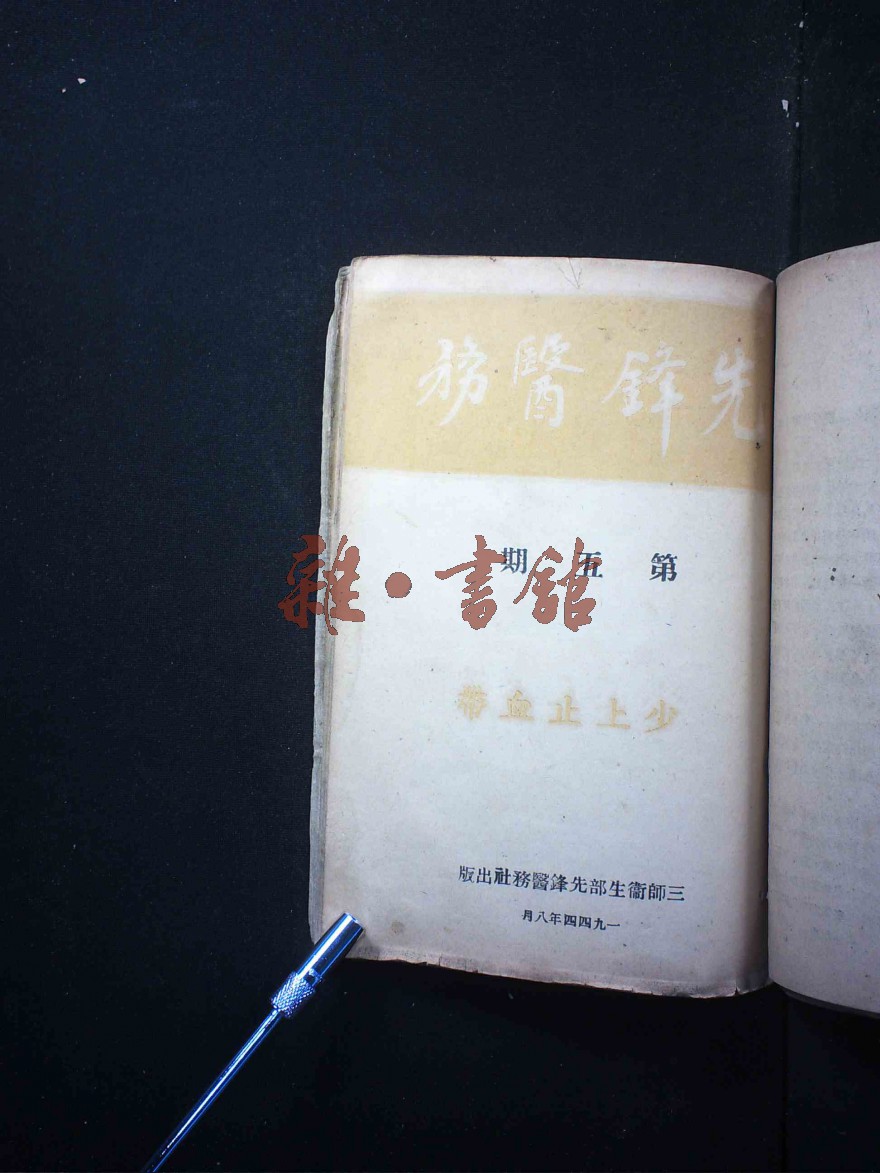 先鋒醫務
第五期
雜·書館
少上止血帶
三師衞生部先鋒醫務社出版
一九四四年八月